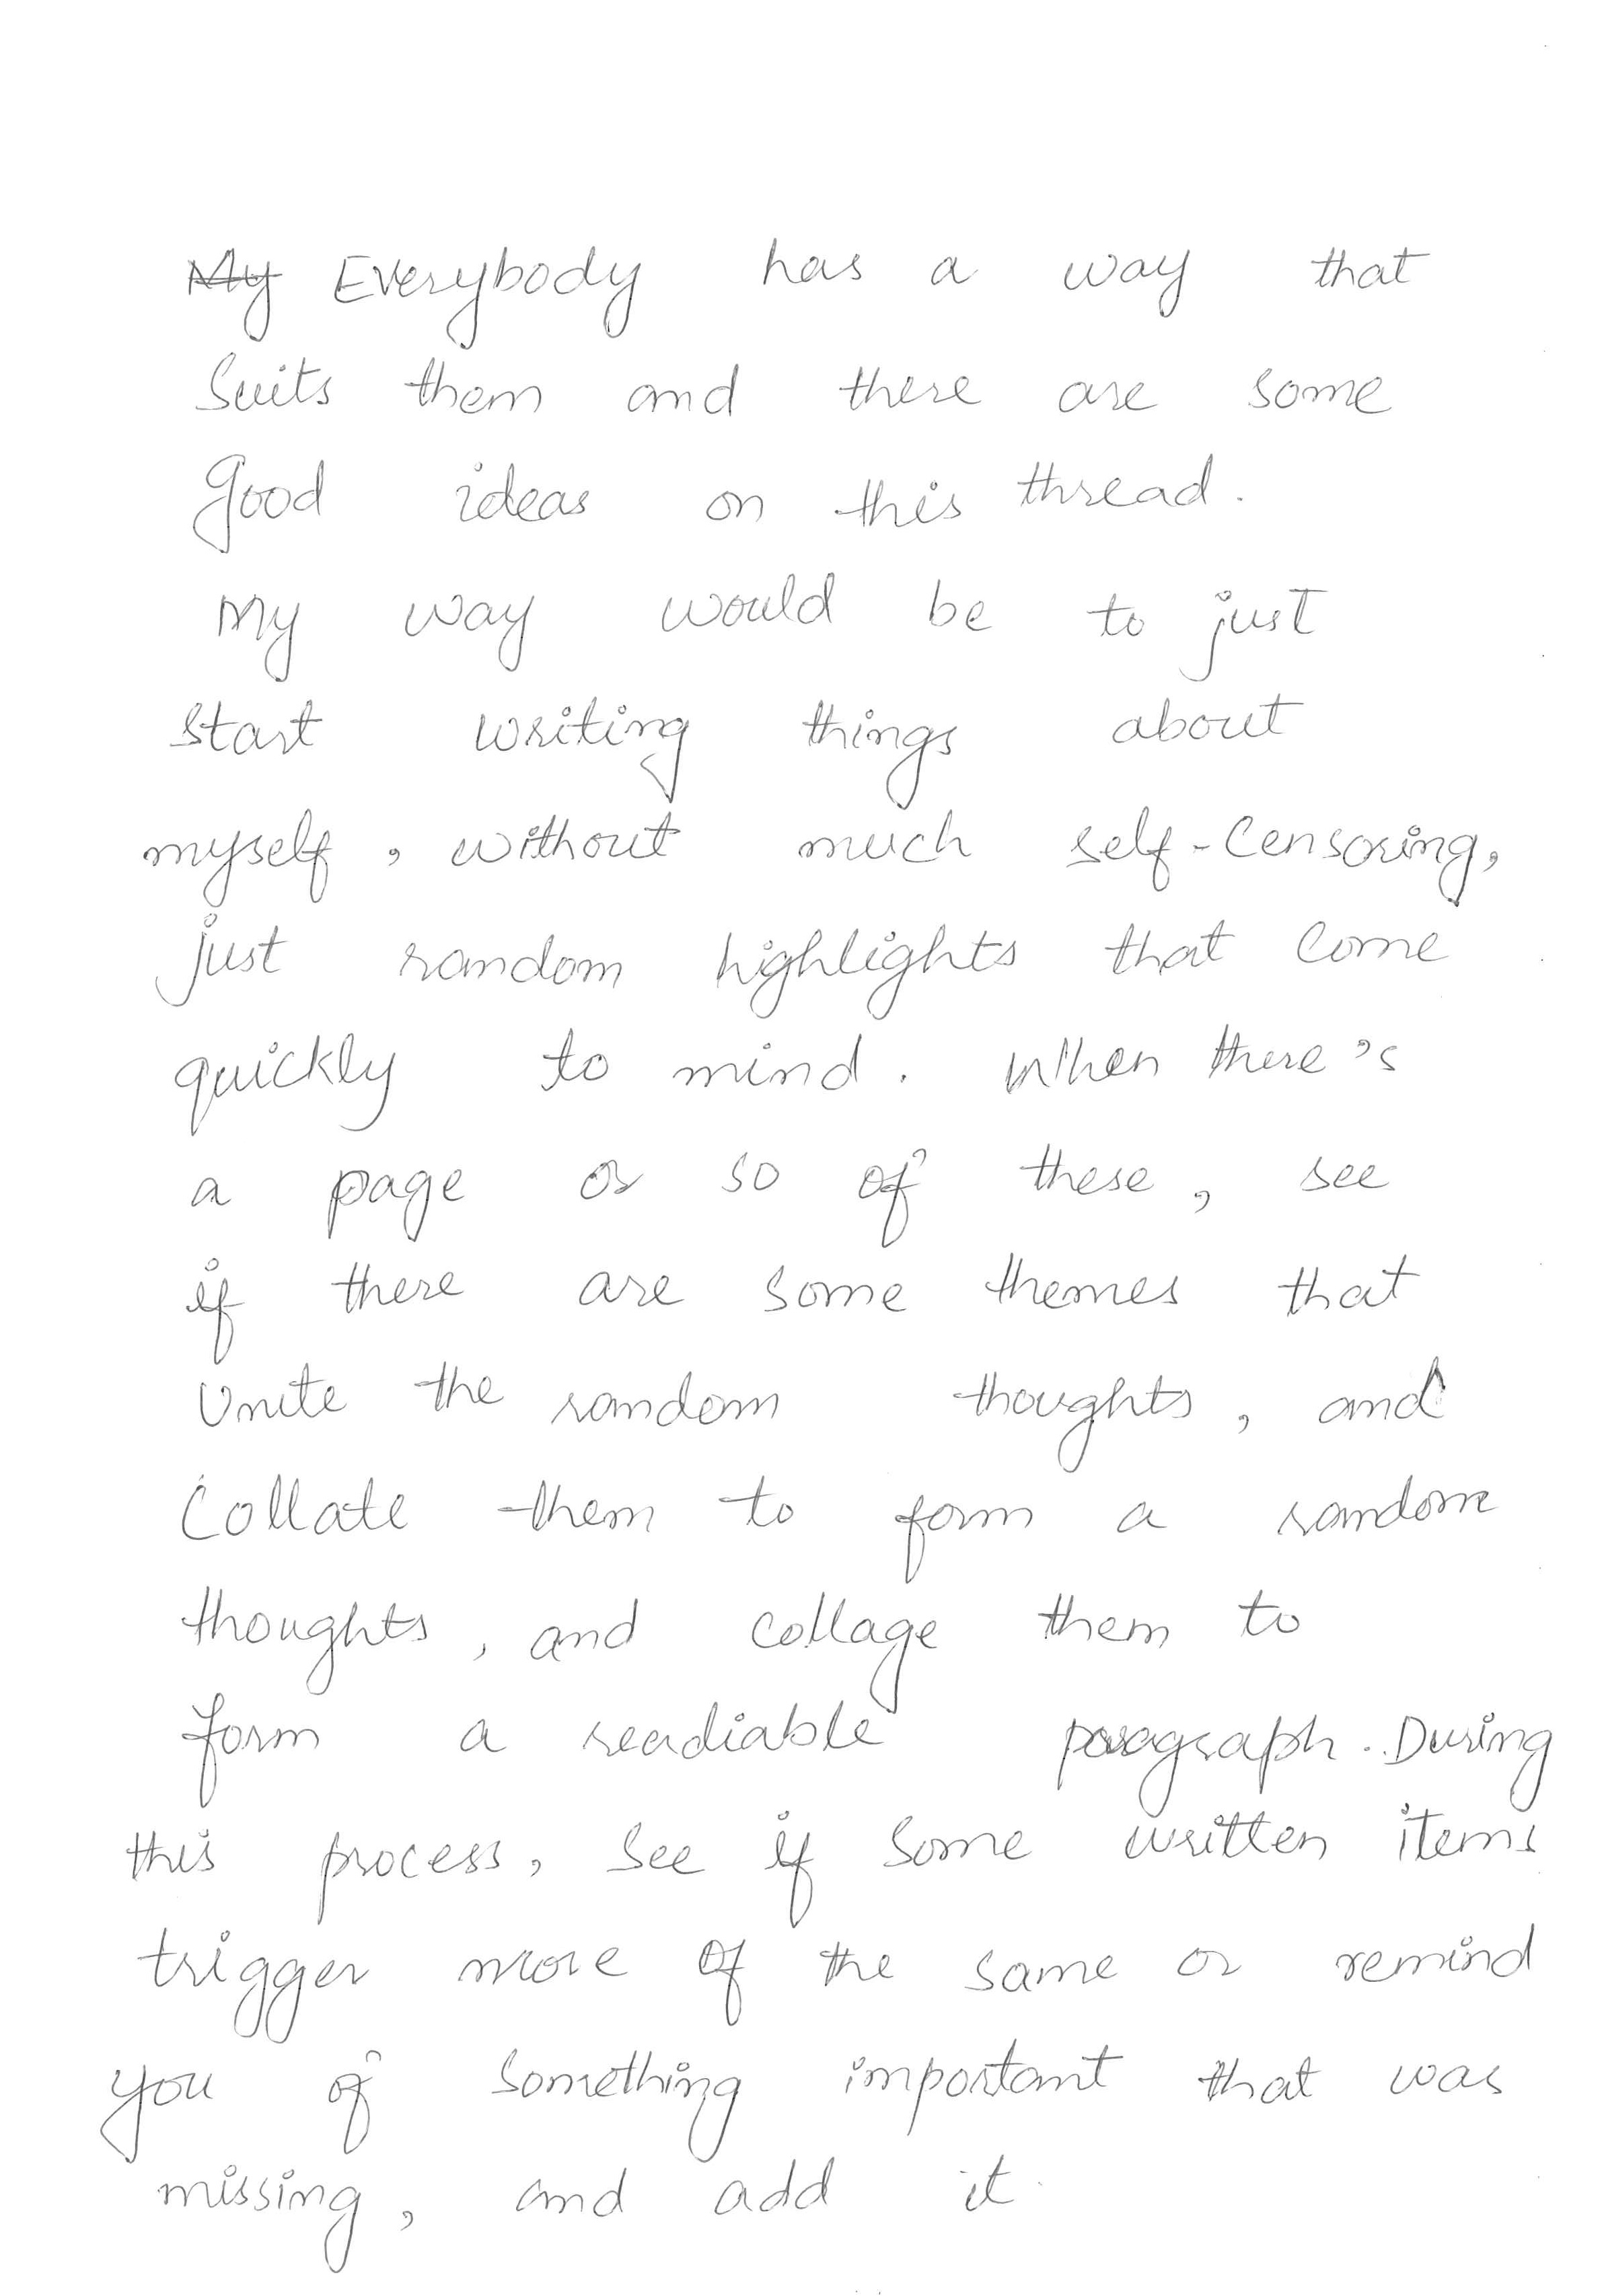 My Everybody has a way that
Suits them and there are some
good ideas on this thread.
My way would be to just
start writing things about
myself, without much self-Censoring,
just random highlights that come
quickly to mind. When there's
a page or so of these, see
if there are some themes that
Unite the random thoughts, and
Collate them to form a random
thoughts, and collage them to
form a readiable paragraph. During
this process, see if some written items
trigger more of the same or remind
you of something important that was
missing, and add it.